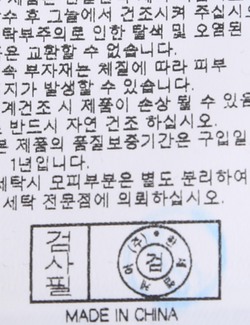 수 후 그늘에서 건조시켜 주십시오
탁부주의로 인한 탈색 및 오염된
은 교환할 수 없습니다.
속 부자재는 체질에 따라 피부
지가 발생할 수 있습니다.
계건조 시 제품이 손상 될 수 있은
반드시 자연 건조 하십시오.
본 제품의 품질보증기간은 구입일
1년입니다.
세탁시 모피부분은 별도 분리하여
세탁 전문점에 의뢰하십시오.
검사필
검
MADE IN CHINA